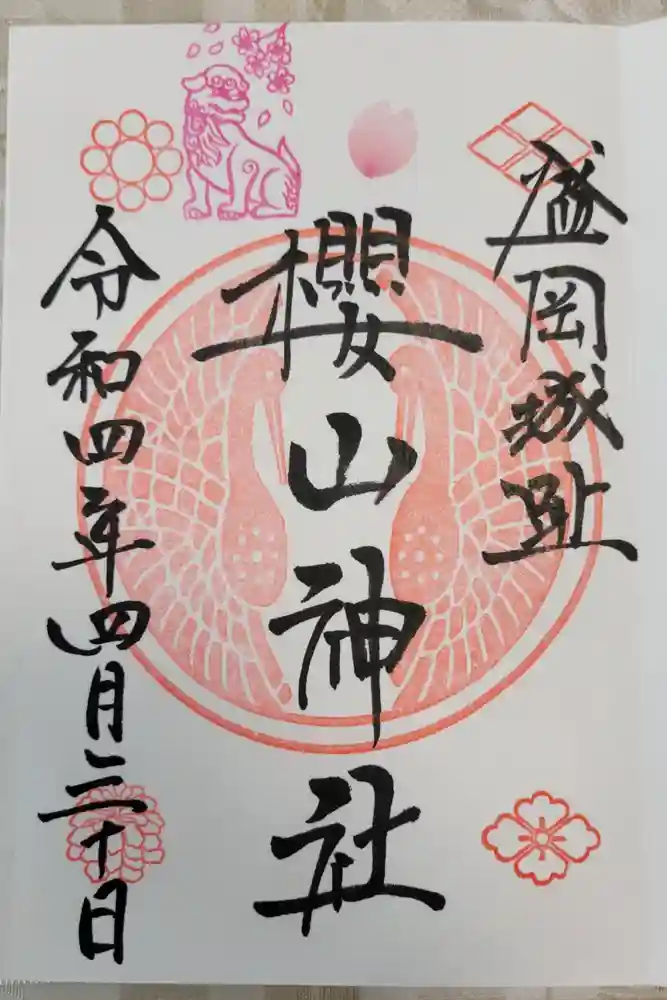 盛岡城趾
櫻山神社
令和四年四月三十日